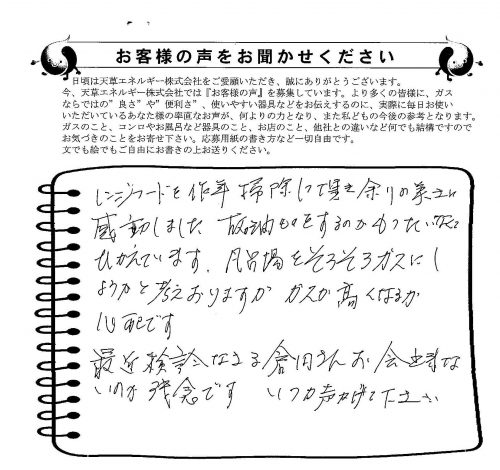 お客様の声をお聞かせください
日頃は天草エネルギー株式会社をご愛顧いただき、誠にありがとうございます。
今、天草エネルギー株式会社では『お客様の声』を募集しています。より多くの皆様に、ガス
ならではの”良さ”や”便利さ”、使いやすい器具などをお伝えするのに、実際に毎日お使い
いただいているあなた様の率直なお声が、何よりの力となり、また私どもの今後の参考となります。
ガスのこと、コンロやお風呂など器具のこと、お店のこと、他社との違いなど何でも結構ですので
お気づきのことをお寄せ下さい。応募用紙の書き方など一切自由です。
文でも絵でもご自由にお書きの上お送りください。
レンジフードを作年掃除して頂き余りの美さに
感動しました 油ものをするのがもったい
ひかえています。風呂場をそろそろガスにし
ようかと考えおりますが ガスが高くなるか
心配です
最近検診なさる倉田さんお会出来な
いのが残念です いつか声かけて下さい